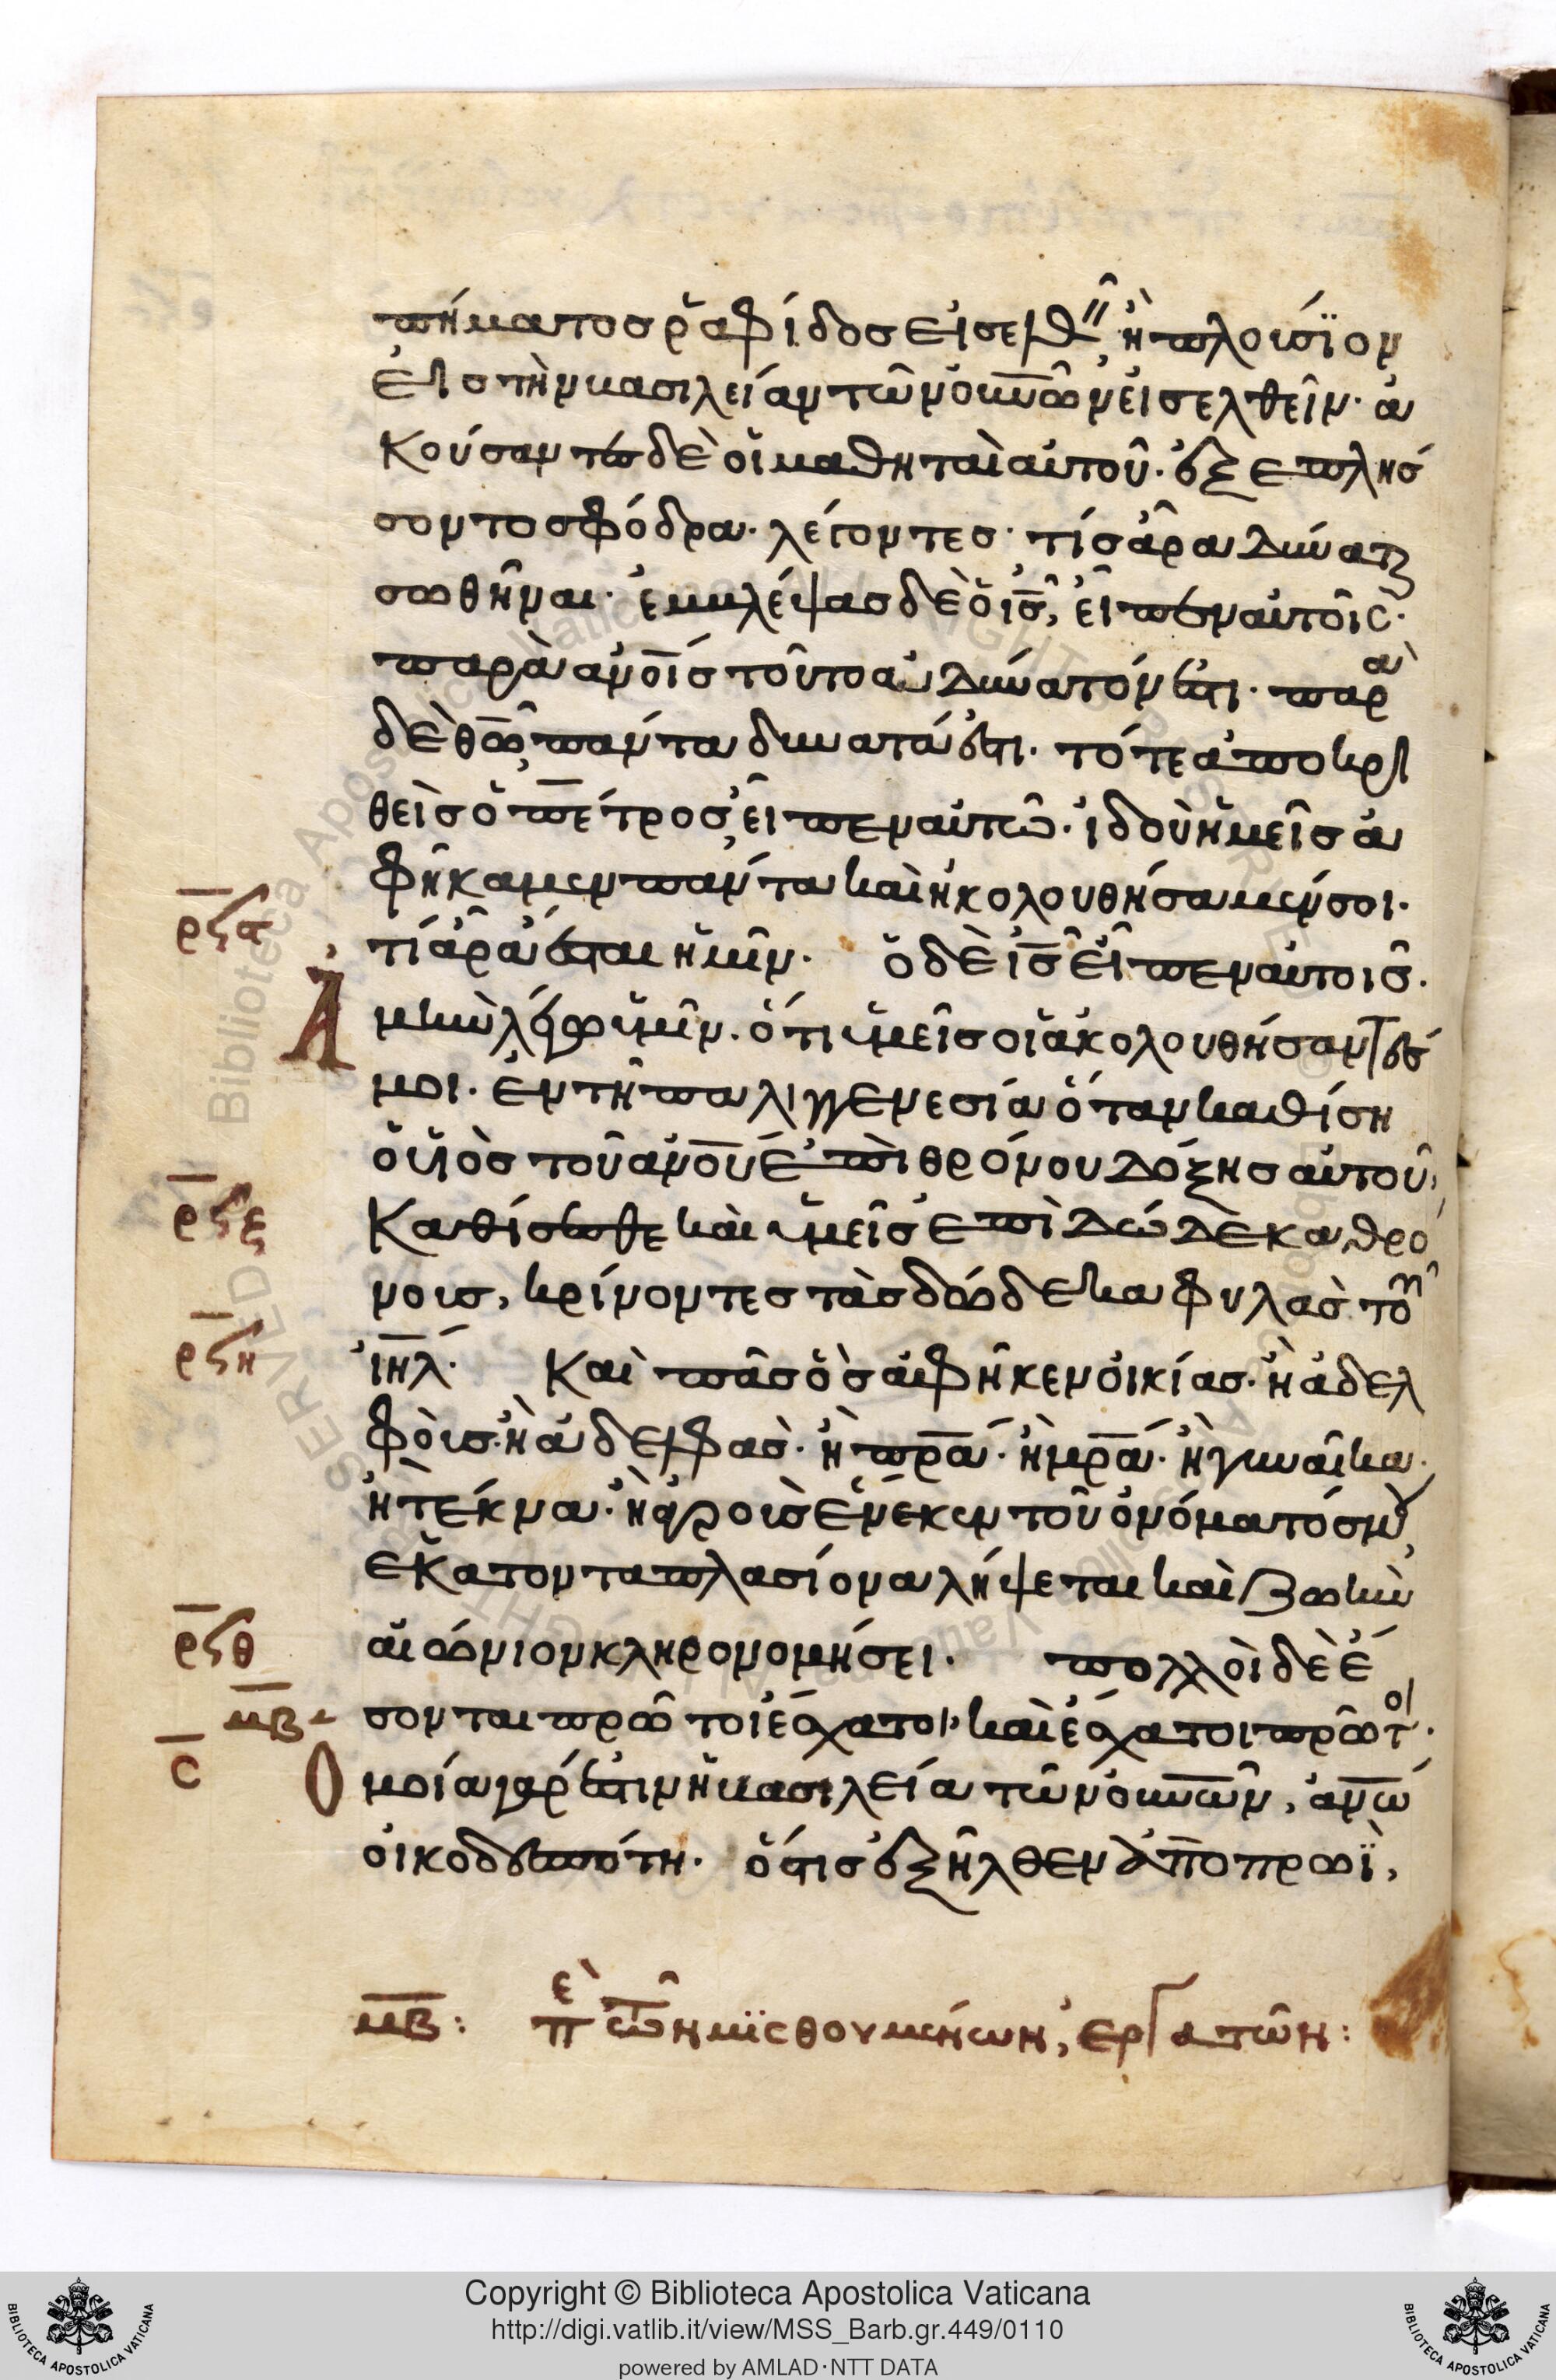 πήματος ῥαφίδος εἰσελθ ἢ πλούσϊον
εἰς τὴν βασιλείαν τῶν οὐν̅ῶν εἰσελθεῖν· ἀ
κούσαντες δὲ οἱ μαθηταὶ αὐτοῦ· ἐξεπλήσ
σοντο σφόδρα· λέγοντες· τίς ἆρα δύναται
σωθῆναι· ἐμβλέψας δὲ ὁ ι̅ς̅, εἶπεν αὐτοῖς·
παρὰ ἀν̅οις τοῦτο ἀδύνατόν ἐστι· παρὰ
δὲ θ̅ω̅, πάντα δυνατά ἐστι· τότε ἀποκρι
θεὶς ὁ πέτρος, εἶπεν αὐτῶ· ἰδοὺ ἡμεῖς ἀ
φήκαμεν πάντα καὶ ἠκολουθήσαμέν σοι·
ρϟα τί ἆρα ἔσται ἡμῖν· ὁ δὲ ι̅ς̅ εἶπεν αὐτοῖς·
Ἀμὴν λέγω ὑμῖν· ὅτι ὑμεῖς οἱ ἀκολουθήσαντές
μοι· ἐν τῆ παλιγγενεσία ὅταν καθίση
ὁ υἱὸς τοῦ ἀν̅ου ἐπὶ θρόνου δόξης αὐτοῦ,
ρϟξ Καθίσεσθε καὶ ὑμεῖς ἐπὶ δώδεκα θρό
νους, κρίνοντες τὰς δώδεκα φυλὰς τοῦ
ρϟη ι̅η̅λ̅· Καὶ πᾶς ὃς ἀφῆκεν οἰκίας· ἢ ἀδελ
φοὺς· ἢ ἀδελφὰς· ἢ π̅ρ̅α̅· ἢ μ̅ρ̅α̅· ἢ γυναῖκα·
ἢ τέκνα· ἢ ἀγροὺς ἕνεκεν τοῦ ὀνόματός μου,
ἑκατονταπλασίονα λήψεται καὶ ζωὴν
ρϟθ αἰώνιον κληρονομήσει· πολλοὶ δὲ ἔ
μβ σονται πρῶτοι ἔσχατοι· καὶ ἔσχατοι πρῶτοι·
σ Ὁμοία γάρ ἐστιν ἡ βασιλεία τῶν οὐν̅ῶν, ἀν̅ω
οἰκοδεσπότη· ὅστις ἐξῆλθεν ἅμα πρωῒ,
μβ: πε τῶν μϊσθουμένων, ἐργατῶν:
Copyright © Biblioteca Apostolica Vaticana
http://digi.vatlib.it/view/MSS_Barb.gr.449/0110
powered by AMLAD·NTT DATA
BIBLIOTECA APOSTOLICA VATICANA
BIBLIOTECA APOSTOLICA VATICANA